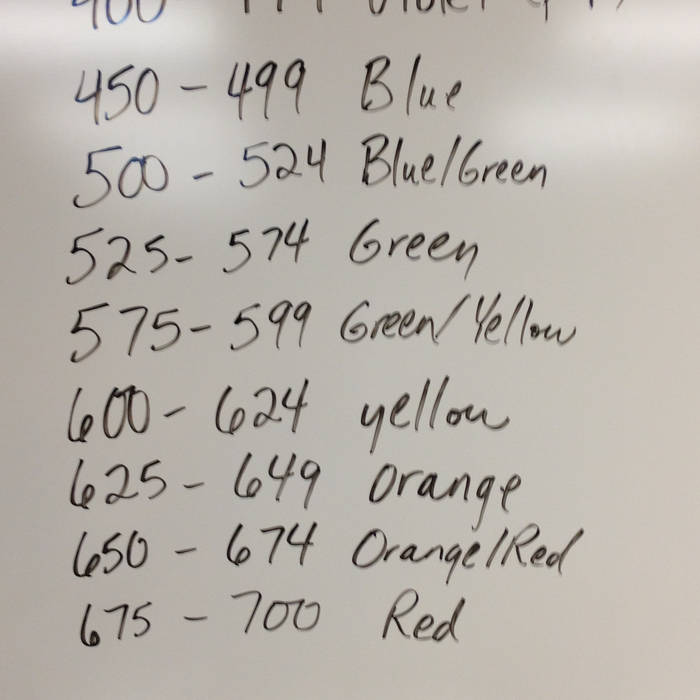 400
450 - 499 Blue
500 - 524 Blue/Green
525 - 574 Green
575 - 599 Green/Yellow
600 - 624 yellow
625 - 649 Orange
650 - 674 Orange/Red
675 - 700 Red